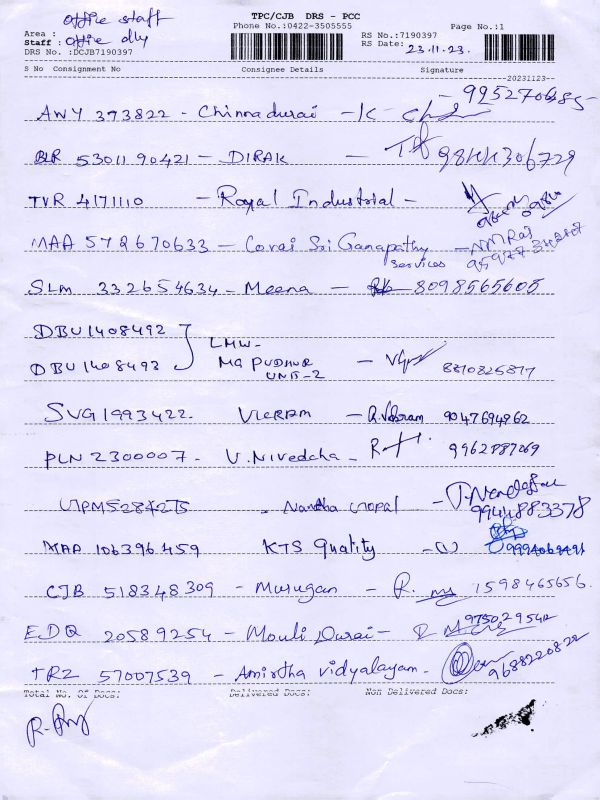 office staff
TPC/CJB DRS - PCC
Area : Phone No.:0422-3505555 Page No.:1
Staff : office dly RS No.:7190397
DRS No. :DCJB7190397 RS Date: 23.11.23.
S No Consignment No Consignee Details Signature
20231123
AWY 373822 - Chinnadurai - 9952706485
BLR 53011 90421 - DIRAK - 9844306729
TVR 4171110 - Royal Industrial -
MAA 572670633 - Covai Sri Ganapathy - NM Raj
Services
SLM 332654634 - Meena - 8098565605
DBU1408492
LMW-
DBU1408493 MG PUDHUR - 8870825877
UNIT-2
SVG1993422. VICKRAM - 9047694862
PLN 2300007 - V. Nivedcha - 9962887069
- Nandha Gopal - 9944883378
MAA 106396459 KTS Quality -
CJB 518348309 - Murugan - R. 1598465656.
EDQ 20589254 - Mouli Durai - 975029542
TRZ 57007539 - Amirtha vidyalayam - 9688220822
Total No. Of Docs: Delivered Docs: Non Delivered Docs: